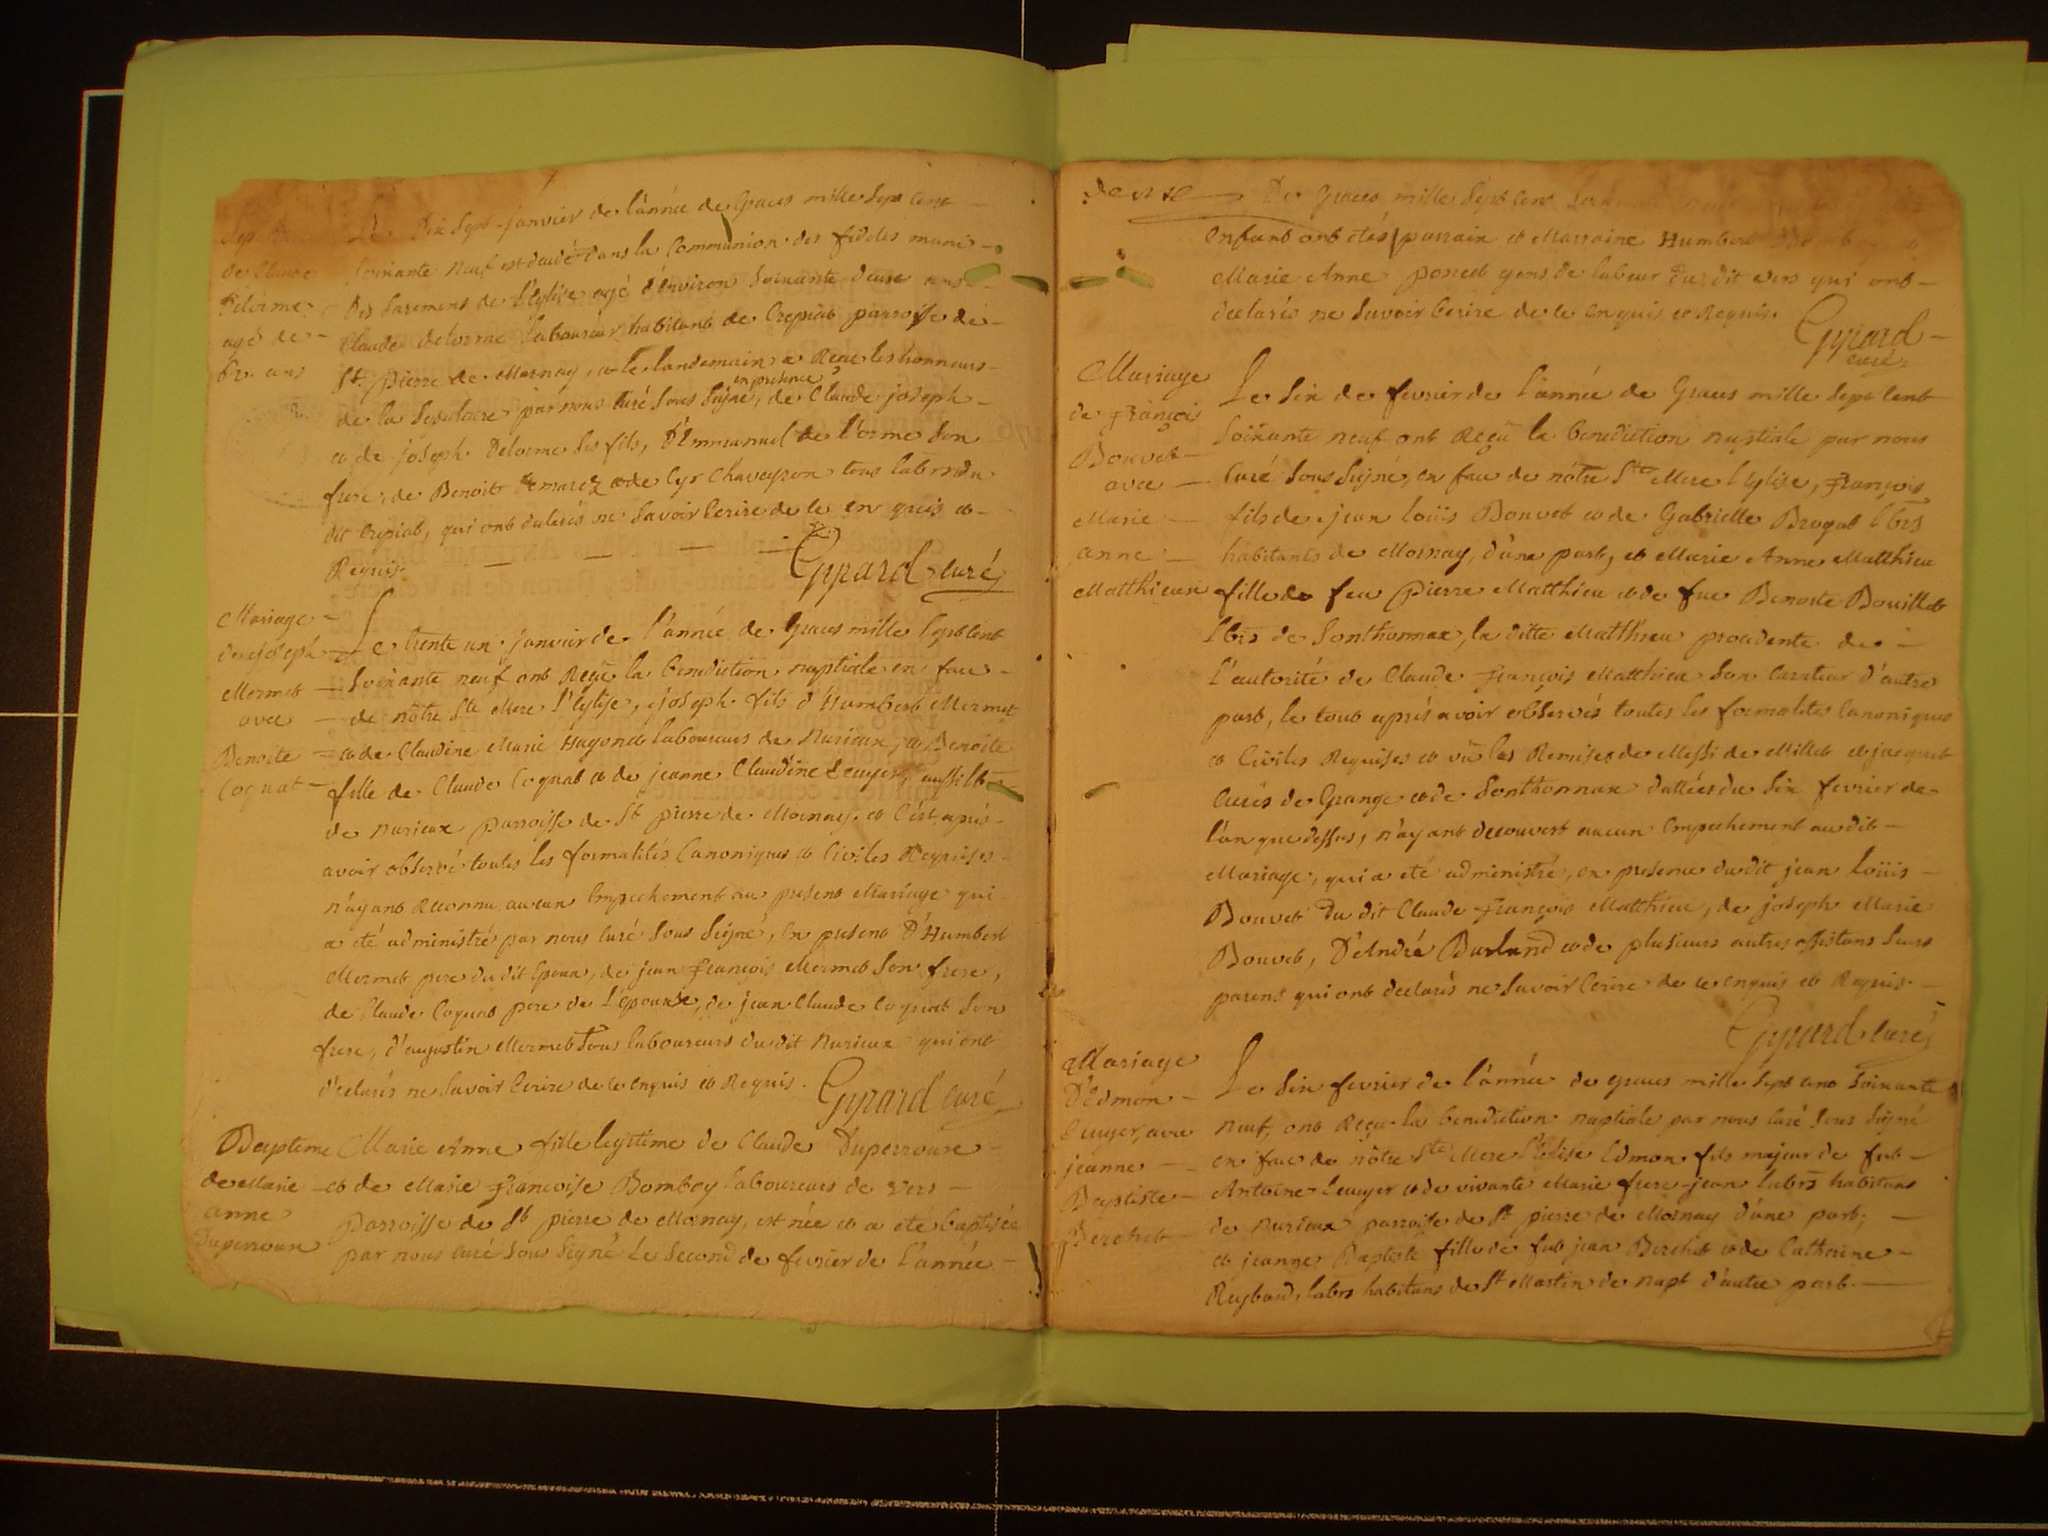 Le Dix Sept janvier de l'année de Graces mille Sept Cent
de Claude
Soixante Neuf est decedé dans la Communion des fideles muni
Delorme
Des Sacremens de l'Eglise agé d'environ Soixante deux ans
agé de
Claude Delorme laboureur habitant de Crepiat parroisse de
62 ans
St. pierre de Mornay, et le landemain a Reçu les honneurs
de la Sepulture par nous Curé Sous Signé, en presence de Claude joseph
et de joseph Delorme Ses fils, D'Emmanuel de l'orme Son
frere, de Benoit et de Cyr Chaveyron tous labrs du
dit Crepiat, qui ont declarés ne Savoir Ecrire de ce enquis et
Requis.
Gyrard Curé
Mariage
de joseph
Mermet
avec
Benoite
Cognat
Le trente un janvier de l'année de Graces mille Sept Cent
Soixante neuf ont Reçu la benediction nuptiale en face
de nôtre Ste Mere l'Eglise, joseph fils d'Humbert Mermet
et de Claudine Marie Hugonet laboureurs de Nurieux, et Benoite
fille de Claude Cognat et de jeanne Claudine Ecuyer, aussi
de nurieux parroisse de St pierre de Mornay. et C'est après
avoir observé toutes les formalités Canoniques et Civiles Requises
n'ayant Reconnu aucun Empechement au present Mariage qui
a eté administré par nous Curé Sous Signé, En presence D'Humbert
Mermet pere du dit Epoux, de jean François Mermet Son frere,
de Claude Cognat pere de l'épouse, de jean Claude Cognat Son
frere, d'augustin Mermet tous laboureurs du dit Nurieux qui ont
declarés ne Savoir Ecrire de ce enquis et Requis.
Gyrard Curé
Bapteme
de Marie
anne
Duperroux
Marie Anne fille legitime de Claude Duperroux
et de Marie Françoise Bomboy laboureurs de Vers
Parroisse de St pierre de Mornay, est née et a eté baptisée
par nous Curé Sous Signé le Second de fevrier de l'année
De Graces mille Sept Cent
Enfant ont etés parrain et Marraine Humbert
Marie Anne poncet gens de labeur du dit vers qui ont
declarés ne Savoir Ecrire de ce enquis et Requis.
Gyrard
Curé
Mariage
de François
Bouvet
avec
Marie
anne
Matthieu
Le Six de fevrier de l'année de Graces mille Sept Cent
Soixante neuf ont Reçu la benediction nuptiale par nous
Curé Sous Signé, en face de nôtre Ste Mere l'Eglise, François
fils de jean loüis Bouvet et de Gabrielle Brogat lbrs
habitants de Mornay, d'une part, et Marie Anne Matthieu
fille de feu Pierre Matthieu et de fue Benoite Bouillet
lbrs de Sonthonnax, la ditte Matthieu procedente de
l'autorité de Claude François Matthieu Son Curateur d'autre
part, le tout aprés avoir observés toutes les formalites Canoniques
et Civiles Requises et vû les Remises de Messi de Millet et jacquet
Curés de Grange et de Sonthonnax dattées du Six fevrier de
l'an que dessus, n'ayant decouvert aucun Empechement au dit
Mariage, qui a eté administré, en presence du dit jean loüis
Bouvet du dit Claude François Matthieu, de joseph Marie
Bouvet, D'André Burland et de plusieurs autres assistans leurs
parens qui ont declarés ne Savoir Ecrire de ce enquis et Requis.
Gyrard Curé
Mariage
D'Edmon
Ecuyer, avec
jeanne
Baptiste
Berchet
Le Six fevrier de l'année de graces mille Sept cent Soixante
neuf, ont Reçu la benediction nuptiale par nous Curé Sous Signé
en face de nôtre Ste Mere l'Eglise Edmon fils majeur de fut
Antoine Ecuyer et de vivante Marie frere-jean labrs habitans
de Nurieux parroisse de St pierre de Mornay d'une part;
et jeanne Baptiste fille de fut jean Berchet et de Catherine
Reybard, labrs habitans de St Martin de Napt d'autre part.